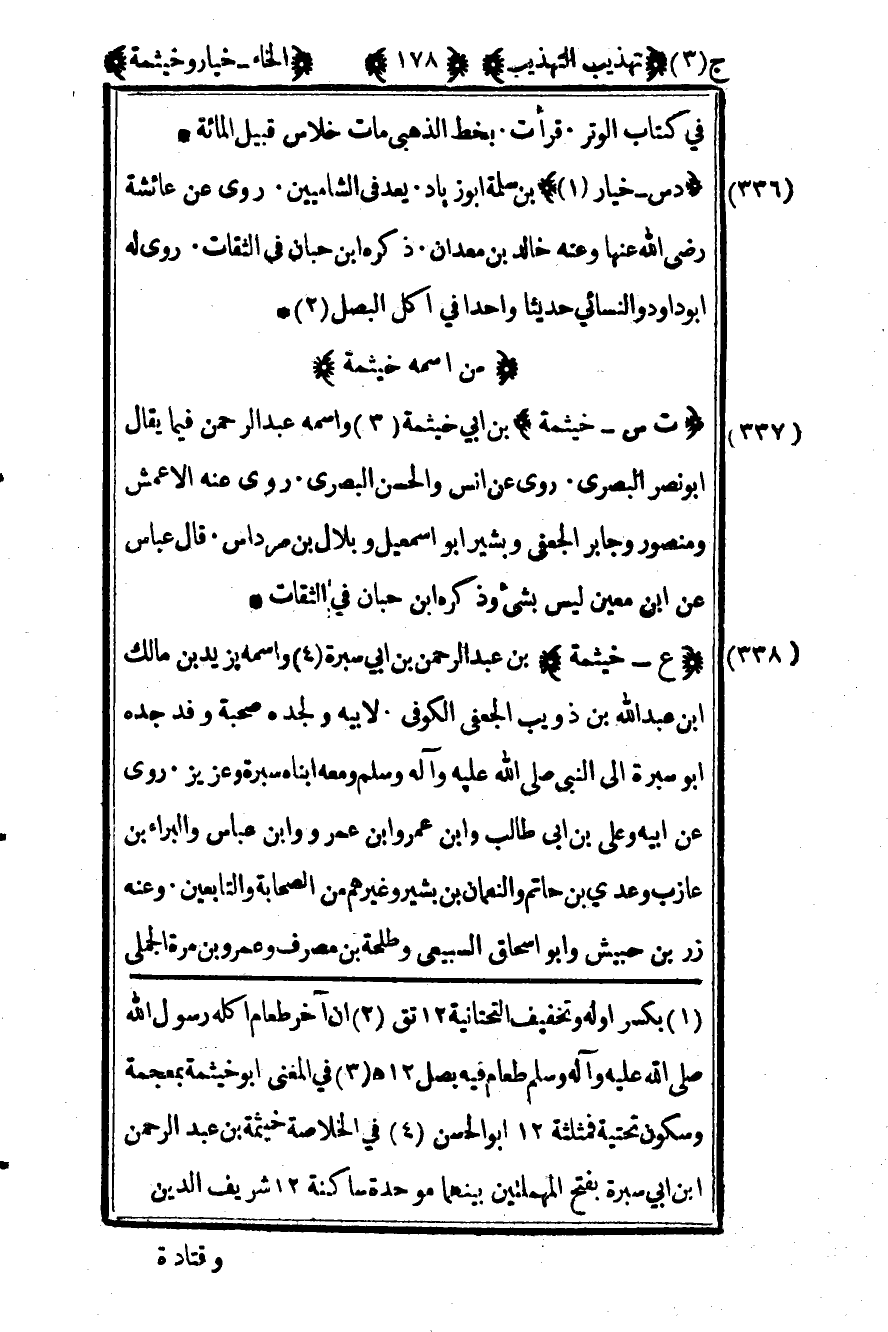 ج(٣) ﴿تهذيب التهذيب﴾ ﴿١٧٨﴾ ﴿الخاء ـ خيار وخيثمة﴾
في كتاب الوتر ٠ قرأت ٠ بخط الذهبي مات خلاس قبيل المائة *
(٣٣٦) ﴿دس ـ خيار (١)﴾ بن سلمة ابو زياد ٠ يعد فى الشاميين ٠ روى عن عائشة
رضى الله عنها وعنه خالد بن معدان ٠ ذكره ابن حبان في الثقات ٠ روى له
ابوداود والنسائي حديثا واحدا في اكل البصل (٢) *
﴿من اسمه خيثمة﴾
(٣٣٧) ﴿ت س ـ خيثمة﴾ بن ابي خيثمة (٣) واسمه عبدالرحمن فيما يقال
ابونصر البصرى ٠ روى عن انس والحسن البصرى ٠ روى عنه الاعمش
ومنصور وجابر الجعفى وبشير ابو اسمعيل وبلال بن مرداس ٠ قال عباس
عن ابن معين ليس بشئ وذكره ابن حبان في الثقات *
(٣٣٨) ﴿ع ـ خيثمة﴾ بن عبدالرحمن بن ابي سبرة (٤) واسمه يزيد بن مالك
ابن عبدالله بن ذويب الجعفى الكوفى ٠ لابيه ولجده صحبة وفد جده
ابو سبرة الى النبي صلى الله عليه وآله وسلم ومعه ابناه سبرة وعزيز ٠ روى
عن ابيه وعلى بن ابى طالب وابن عمر وابن عمرو وابن عباس والبراء بن
عازب وعدي بن حاتم والنعمان بن بشير وغيرهم من الصحابة والتابعين ٠ وعنه
زر بن حبيش وابو اسحاق السبيعى وطلحة بن مصرف وعمرو بن مرة الجملى
(١) بكسر اوله وتخفيف التحتانية ١٢ تق (٢) ان آخر طعام اكله رسول الله
صلى الله عليه وآله وسلم طعام فيه بصل ١٢ ه (٣) في المغنى ابو خيثمة بمعجمة
وسكون تحتية فمثلثة ١٢ ابو الحسن (٤) في الخلاصة خيثمة بن عبد الرحمن
ابن ابي سبرة بفتح المهملتين بينهما موحدة ساكنة ١٢ شريف الدين
وقتادة